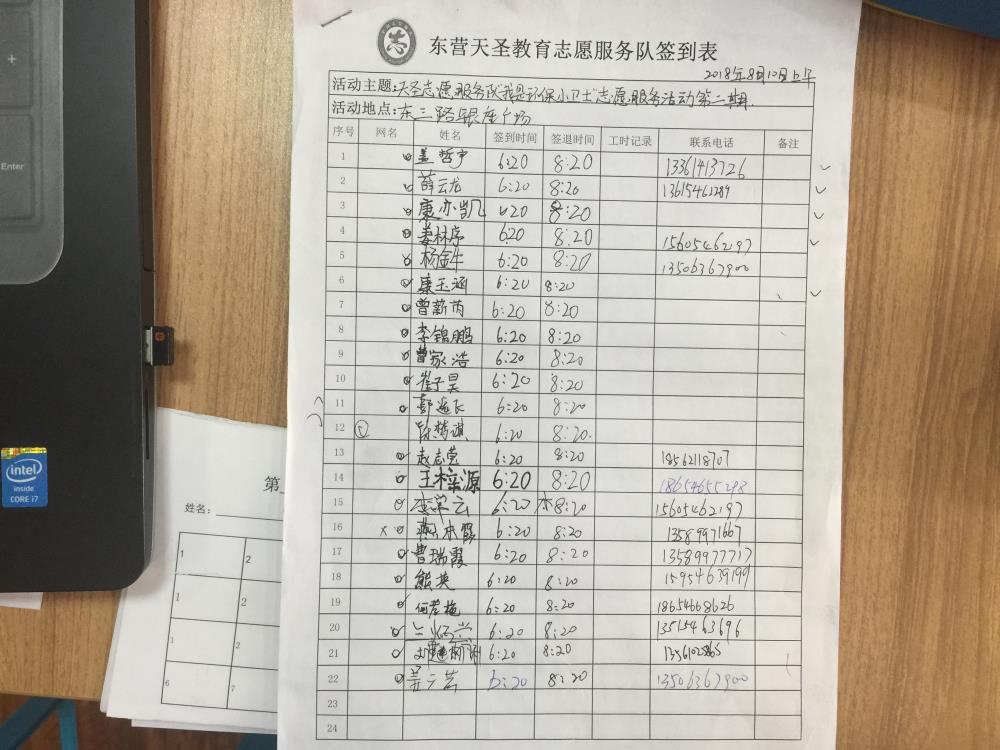 东营天圣教育志愿服务队签到表
2018年8月10日上午
活动主题:天圣志愿服务队"我是环保小卫士"志愿服务活动第二期
活动地点:东三路银座广场
序号 网名 姓名 签到时间 签退时间 工时记录 联系电话 备注
1 盖哲宇 6:20 8:20 13361413726
2 薛云龙 6:20 8:20 13615461289
3 康亦凯 6:20 8:20
4 姜林序 6:20 8:20 15605462197
5 杨金牛 6:20 8:20 13506367900
6 康玉涵 6:20 8:20
7 曾新芮 6:20 8:20
8 李锦鹏 6:20 8:20
9 曹家浩 6:20 8:20
10 崔子昊 6:20 8:20
11 6:20 8:20
12 6:20 8:20
13 赵志莹 6:20 8:20 18562118707
14 王梓源 6:20 8:20 18654655298
15 6:20 8:20 15605462197
16 6:20 8:20 13589971667
17 曹瑞霞 6:20 8:20 13589977717
18 熊英 6:20 8:20 15954639199
19 6:20 8:20 18654668626
20 6:20 8:20 13515463696
21 6:20 8:20
22 6:20 8:20 13506367900
23
24
Enter
intel
inside
CORE i7
第
姓名:
1 2
1 2
1 2
6 7